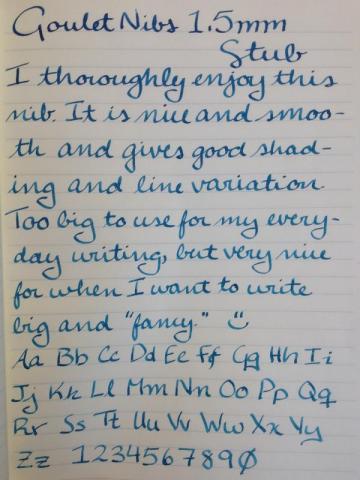 Goulet Nibs 1.5mm
Stub
I thoroughly enjoy this
nib. It is nice and smoo-
th and gives good shad-
ing and line variation
Too big to use for my every-
day writing, but very nice
for when I want to write
big and "fancy." :)
Aa Bb Cc Dd Ee Ff Gg Hh Ii
Jj Kk Ll Mm Nn Oo Pp Qq
Rr Ss Tt Uu Vv Ww Xx Yy
Zz 1234567890